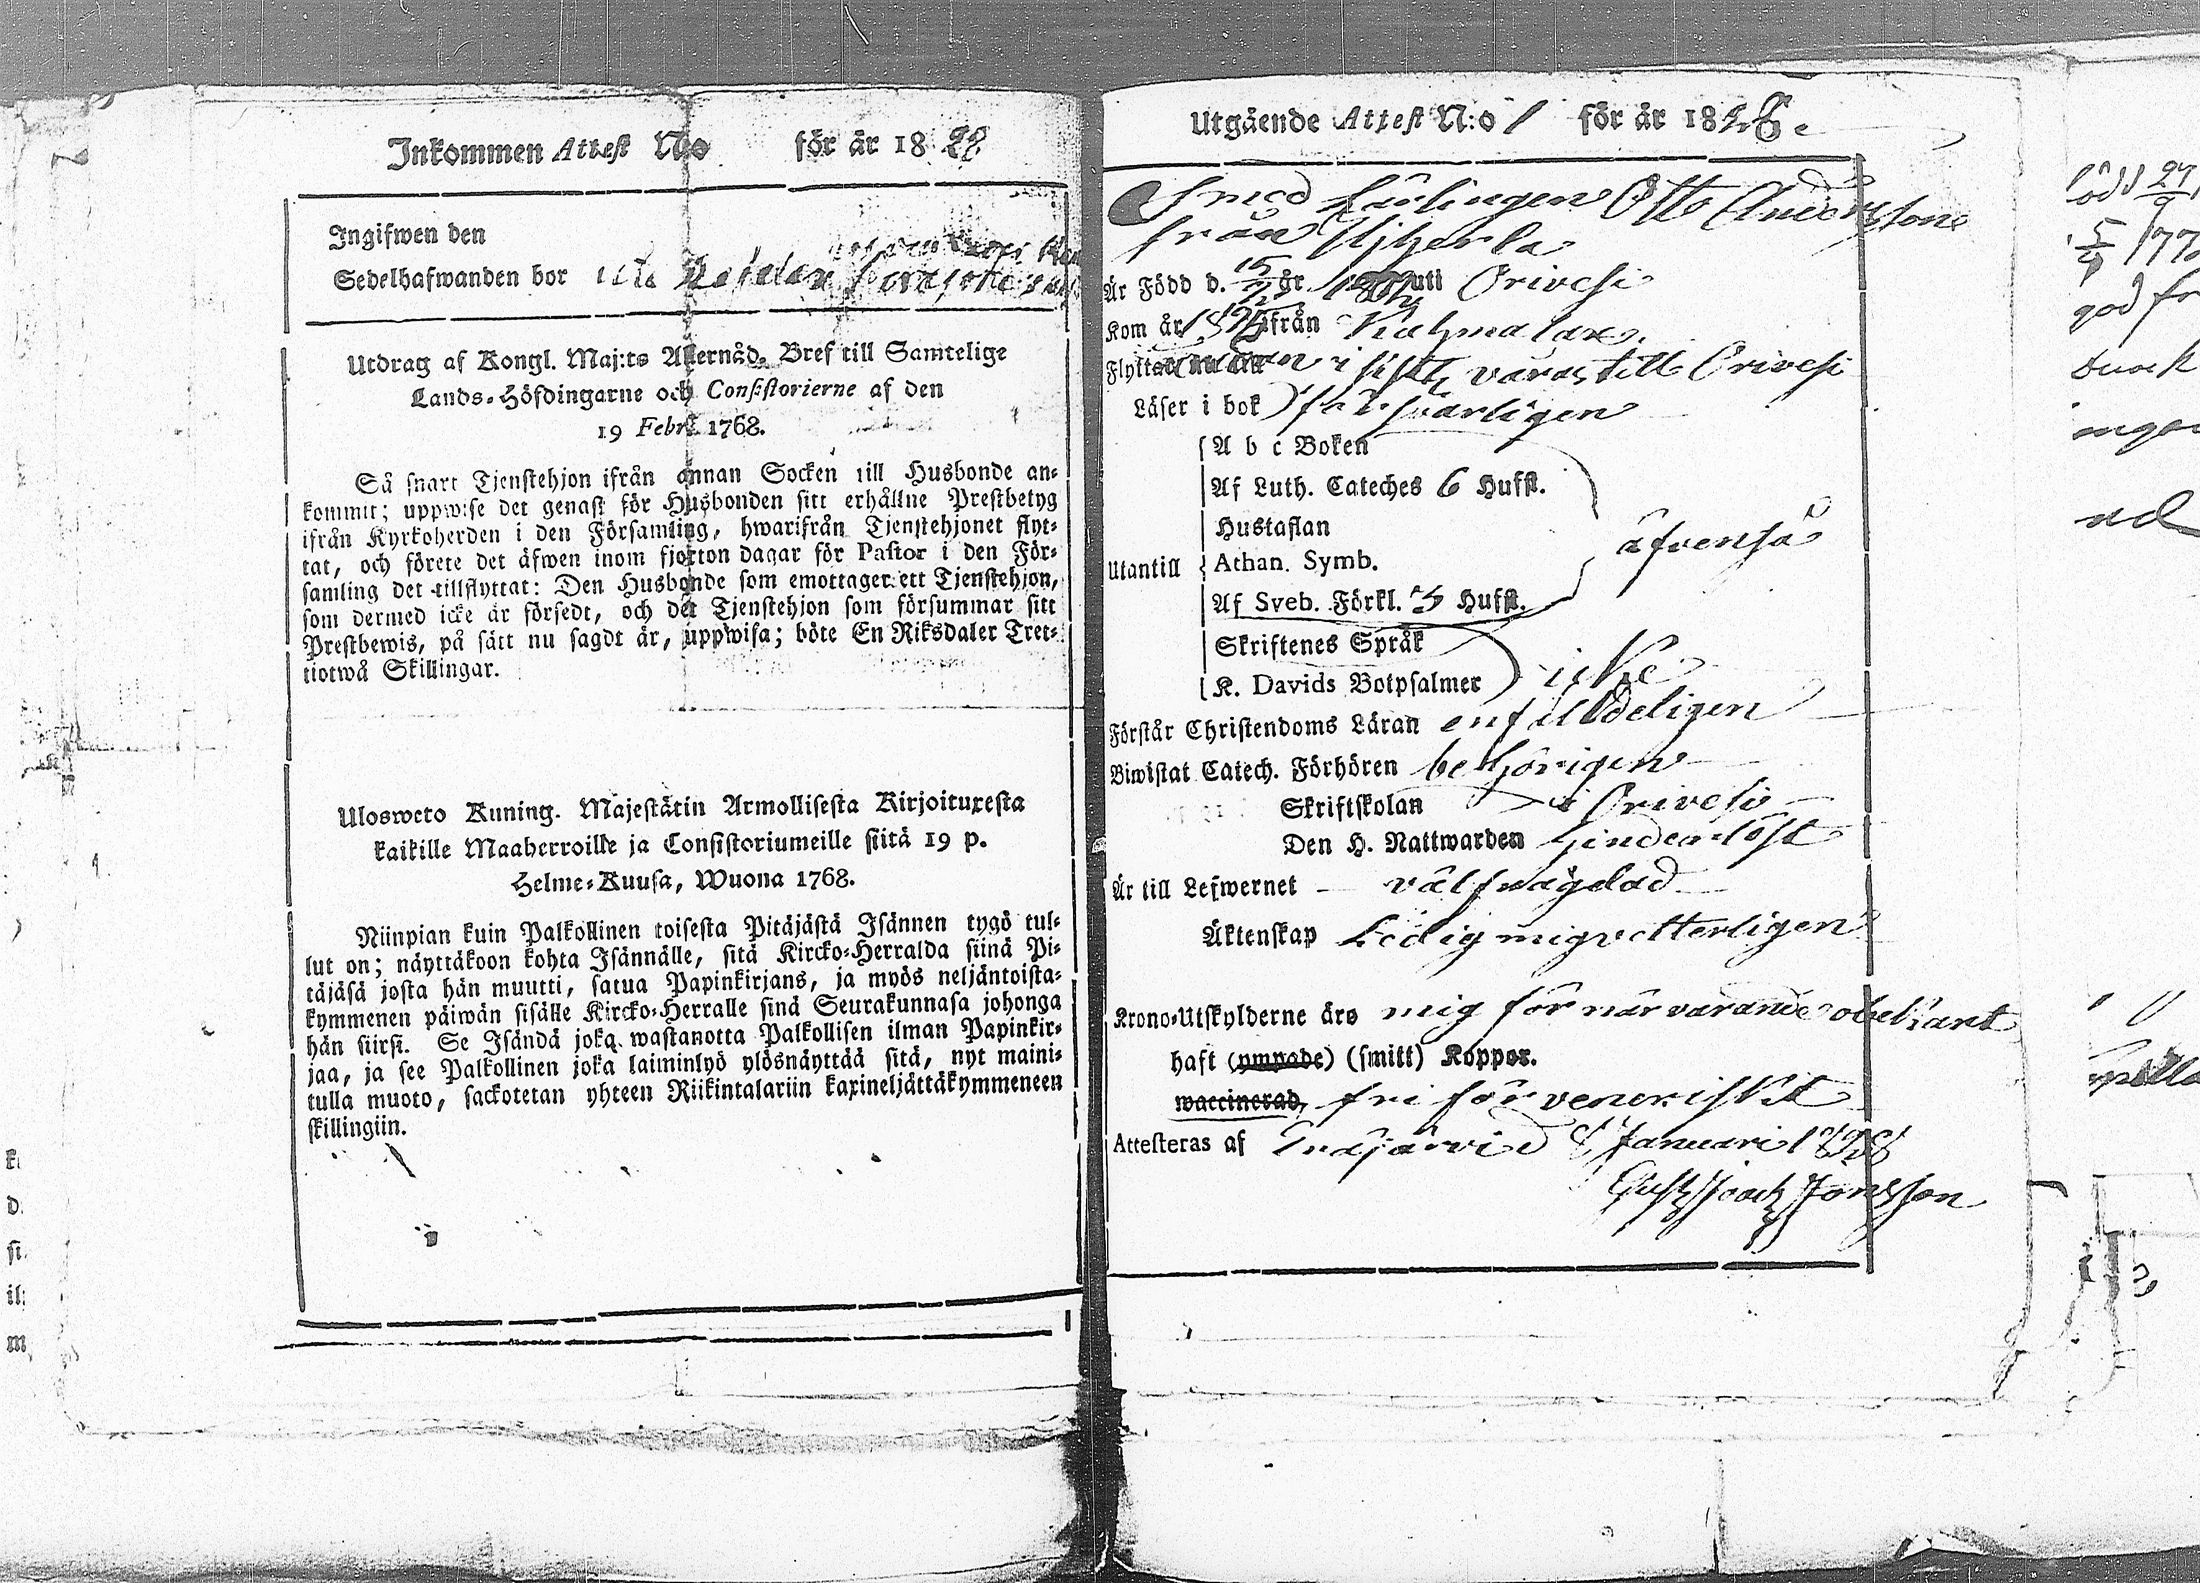 Inkommen Attest N:o för är 18 28
Ingifwen den
Sedelhafwanden bor
Utdrag af Kongl. Maj:ts Allernåd. Bref till Samtelige
Lands-Höfdingarne och Consistorierne af den
19 Febr. 1768.
Så snart Tjenstehjon ifrån annan Socken till Husbonde an-
kommit; uppwise det genast för Husbonden sitt erhållne Prestbetyg
ifrån Kyrkoherden i den Församling, hwarifrån Tjenstehjonet flyt-
tat, och förete det äfwen inom fjorton dagar för Pastor i den För-
samling det tillflyttat: Den Husbonde som emottager ett Tjenstehjon,
som dermed icke är försedt, och det Tjenstehjon som försummar sitt
Prestbewis, på sätt nu sagdt är, uppwisa; böte En Riksdaler Tret-
tiotwå Skillingar.
Ulosweto Kuning. Majestätin Armollisesta Kirjoituxesta
kaikille Maaherroille ja Consistoriumeille siitä 19 p.
Helme-Kuusa, Wuona 1768.
Niinpian kuin Palkollinen toisesta Pitäjästä Isännen tygö tul-
lut on; näyttäkoon kohta Isännälle, sitä Kircko-Herralda siinä Pi-
täjäsä josta hän muutti, satua Papinkirjans, ja myös neljäntoista-
kymmenen päiwän sisälle Kircko-Herralle sinä Seurakunnasa johonga
hän siirsi. Se Isändä joka wastanotta Palkollisen ilman Papinkir-
jaa, ja see Palkollinen joka laiminlyö ylösnäyttää sitä, nyt maini-
tulla muoto, sackotetan yhteen Riikintalariin kaxineljättäkymmeneen
skillingiin.
Utgående Attest N:o 1 för är 1828.
Smed Lärlingen Otto Andersson
från
Är Född d. 15 år uti Orivesi
Kom år ifrån Kuhmalax.
Flyttar till Orivesi
Läser i bok försvarligen
A b c Boken
Af Luth. Cateches 6 Hufst.
Hustaflan
Utantill Athan. Symb. äfvenså
Af Sveb. Förkl. 5 Hufst.
Skriftenes Språk
K. Davids Botpsalmer icke
Förstår Christendoms Läran enfaldeligen
Biwistat Catech. Förhören behörigen
Skriftskolan i Orivesi
Den H. Nattwarden hinderlöst
Är till Lefwernet välfrägdad
Äktenskap Ledig mig vetterligen
Krono-Utskylderne äro mig för närvarande obekant
haft (ympade) (smitt) Koppor.
waccinerad, fri för veneriskt
Attesteras af Eräjärvi d 8 Januari 1828
Gust Isaak Jonsson
född 27
5 177
god fr